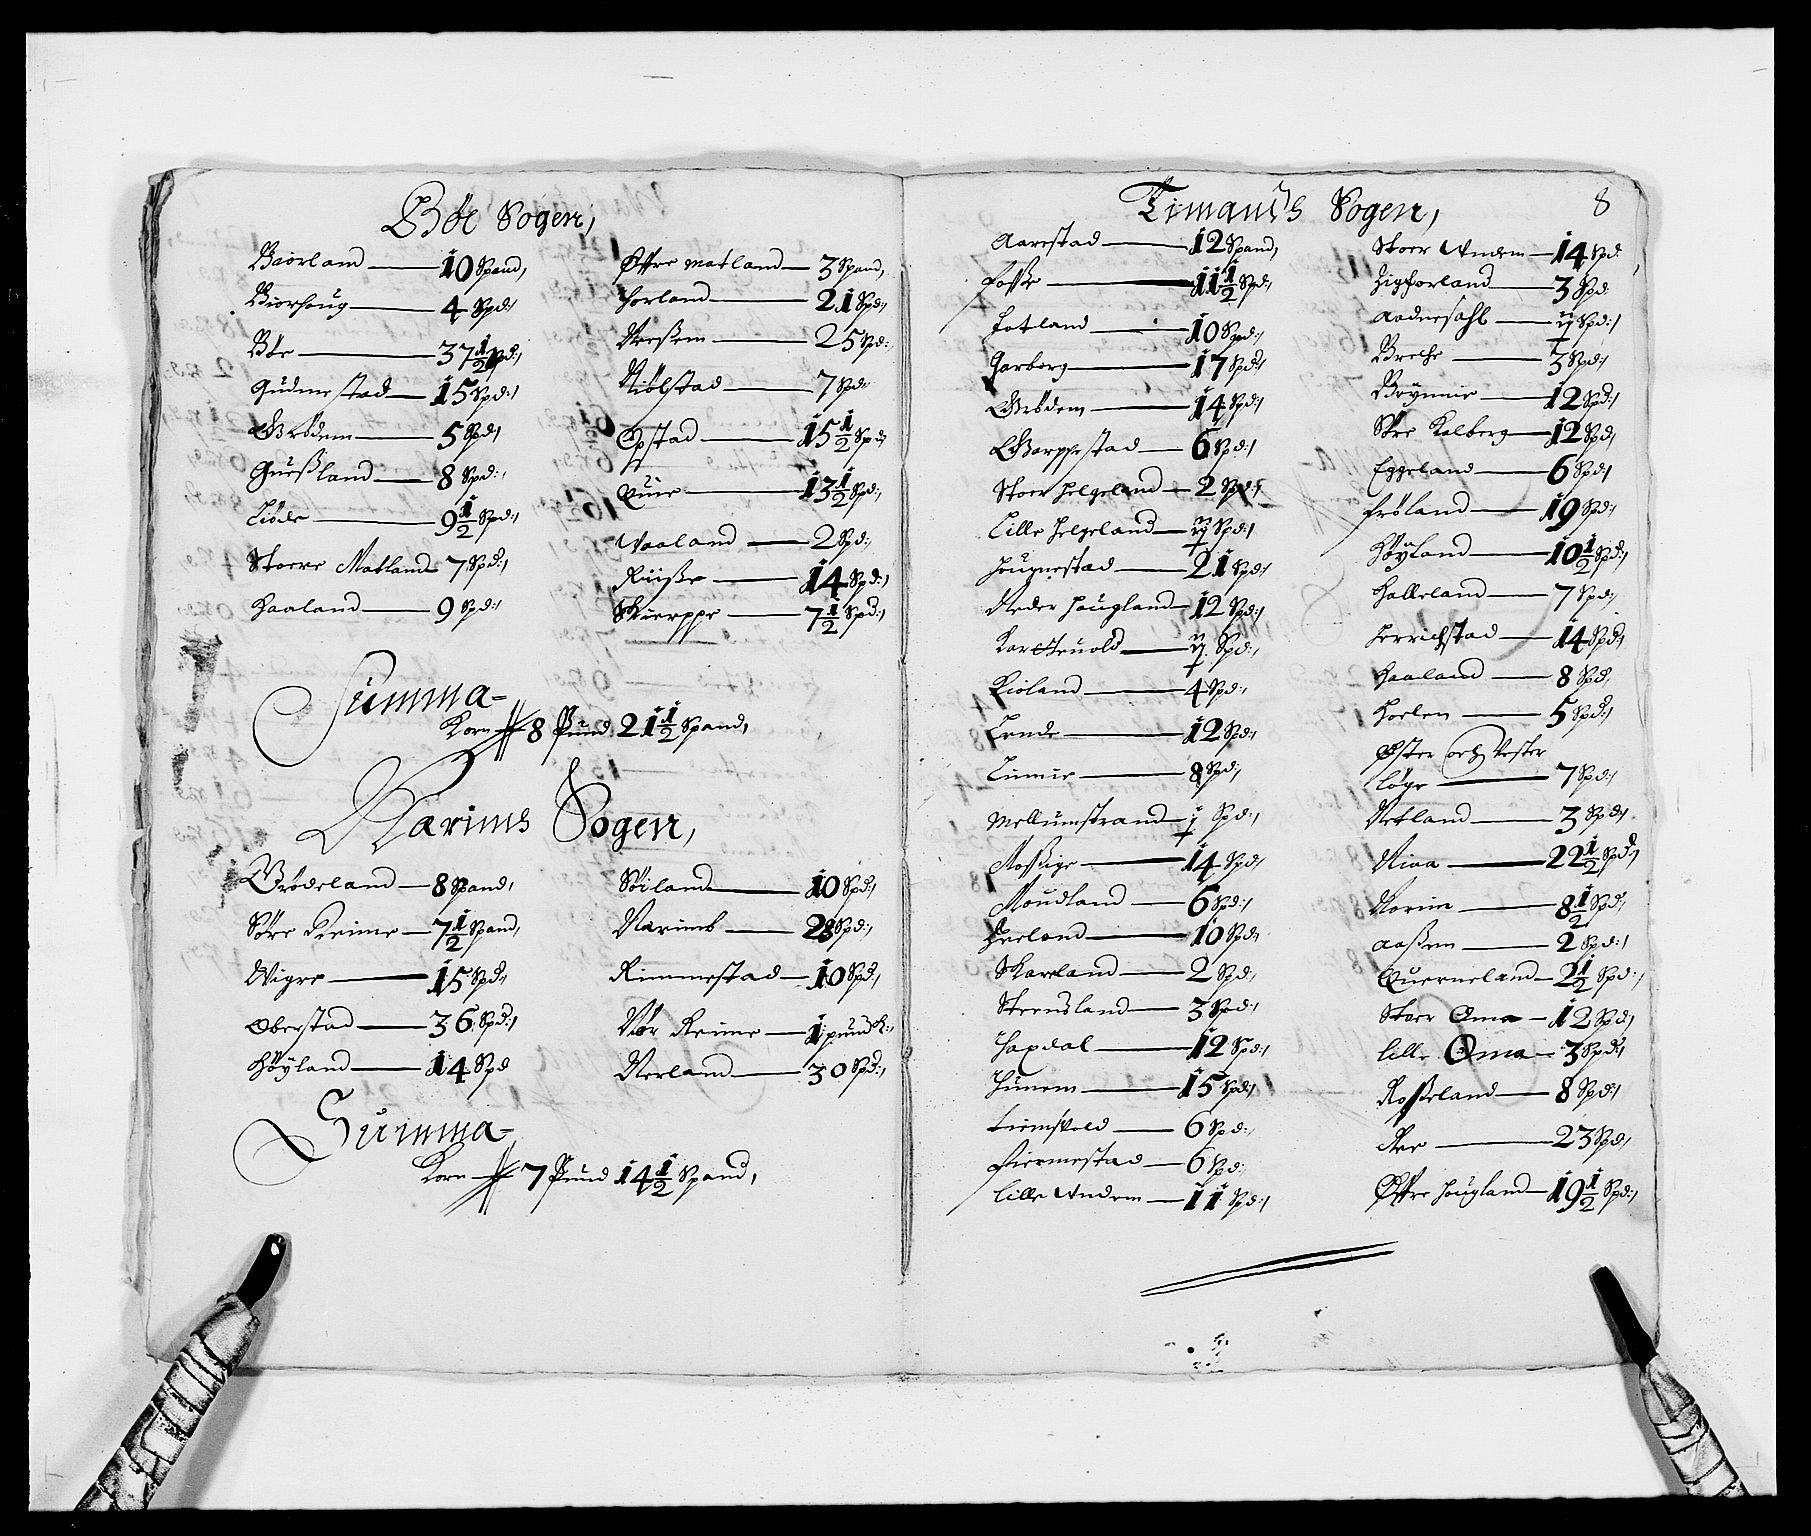 Bøe Sogen,
Biorland — 10 Spand,
Biorhoug — 4 Spd:
Bøe — 37½ Spd:
Gudmestad — 15 Spd:
Grødem — 5 Spd:
Gueßland — 8 Spd:
Liøde — 9½ Spd:
Stoere Matland 7 Spd:
Haaland — 9 Spd:
Øffre Matland — 3 Spand,
Horland — 21 Spd:
Nerßem — 25 Spd:
Niølstad — 7 Spd:
Opstad — 15½ Spd:
Quie — 13½ Spd:
Vaaland — 2 Spd:
Riiße — 14 Spd:
Skierppe — 7½ Spd:
Summa
Korn 8 Pund 21½ Spand,
Narims Sogen,
Brødeland — 8 Spand,
Søre Reime — 7½ Spand,
Wigre — 15 Spd:
Obrestad — 36 Spd:
Høyland — 14 Spd
Søiland — 10 Spd:
Narimb — 28 Spd:
Rimmestad — 10 Spd:
Nør Reime — 1 pund k:
Nerland — 30 Spd:
Summa
Korn 7 Pund 14½ Spand,
8
Timands Sogen,
Aarestad — 12 Spand,
Foske — 11½ Spd:
Fotland — 10 Spd:
Garborg — 17 Spd:
Grødem — 14 Spd:
Garppestad — 6 Spd:
Stoer Helgeland — 2 Spd:
Lille Helgeland — ½ Spd:
Hougnestad — 21 Spd:
Neder Hougland — 12 Spd:
Spd:
Kioland — 4 Spd:
Lende — 12 Spd:
Linnie — 8 Spd:
Mellumstrand — Spd:
Moßige — 14 Spd:
Moudland — 6 Spd:
Hreland — 10 Spd:
Skareland — 2 Spd:
Steensland — 3 Spd:
Taxdal — 12 Spd:
Tunem — 15 Spd:
Tiemsvold — 6 Spd:
Fiermestad — 6 Spd:
Lille Undem — 11 Spd:
Stoer Undem — 14 Spd
3 Spd:
Spd:
Breche — 3 Spd:
Brynnie — 12 Spd:
Søre Kalberg — 12 Spd:
Eggeland — 6 Spd:
Frøland — 19 Spd:
Høyland — 10½ Spd:
Halleland — 7 Spd:
Herrichstad — 14 Spd:
Haaland — 8 Spd:
Hoelen — 5 Spd:
Øster och Vester
Løge — 7 Spd:
Netland — 3 Spd:
Niaa — 22½ Spd:
Norim — 8½ Spd:
Aaßen — 2 Spd:
Querneland — 2½ Spd:
Stoer Oma — 12 Spd:
Lille Oma — 3 Spd:
Roßeland — 8 Spd:
Ree — 23 Spd:
Øffre Hougland — 19½ Spd: